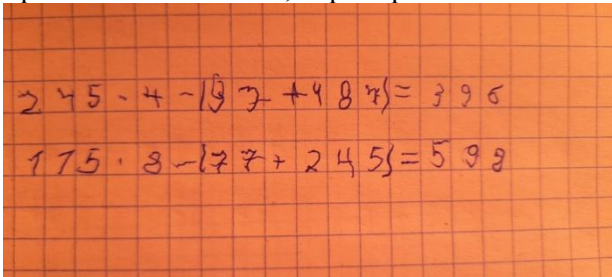 245·4-(97+487)=396
115·8-(77+245)=598